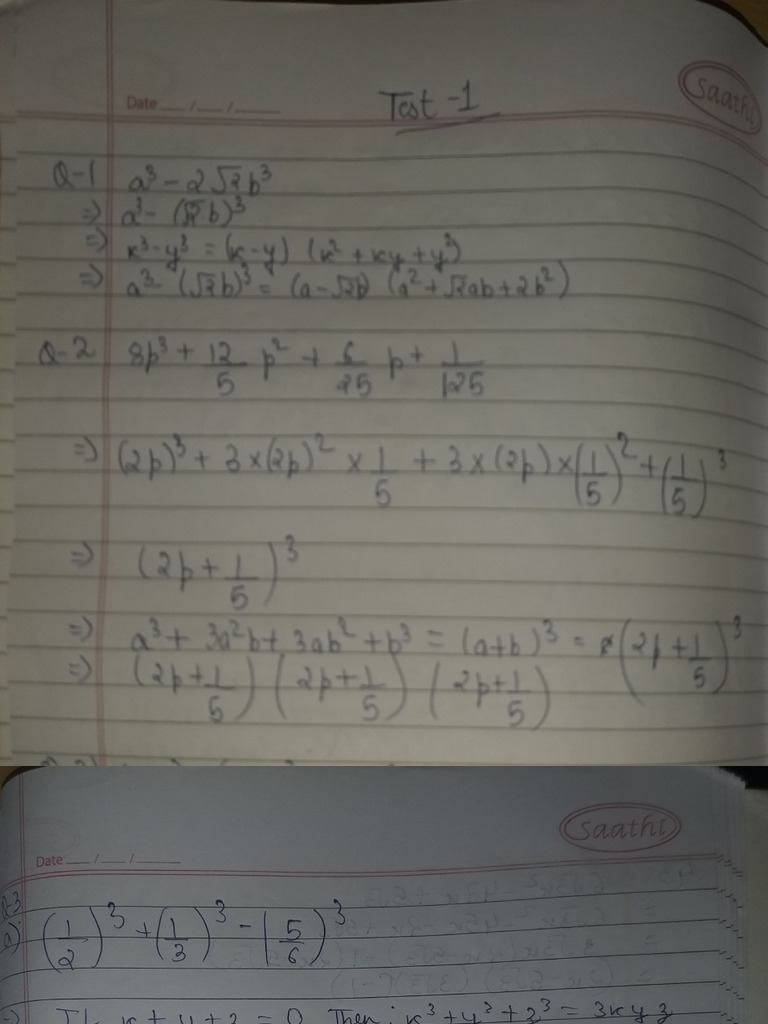 Date __ / __ / ____
Test-1
Saathi
Q-1 a³ - 2√2b³
=> a³ - (√2b)³
=> x³-y³ = (x-y) (x² + xy + y³)
=> a³ - (√2b)³ = (a-√2b) (a² + √2ab + 2b²)
Q-2 8p³ + 12/5 p² + 6/25 p + 1/125
=> (2p)³ + 3×(2p)² × 1/5 + 3×(2p)×(1/5)² + (1/5)³
=> (2p + 1/5)³
=> a³ + 3a²b + 3ab² + b³ = (a+b)³ = (2p + 1/5)³
=> (2p+1/5) (2p+1/5) (2p+1/5)
Saathi
Date __ / __ / ____
Q-3
a) (1/2)³ + (1/3)³ - (5/6)³
=> If x + y + z = 0 Then; x³ + y³ + z³ = 3xyz